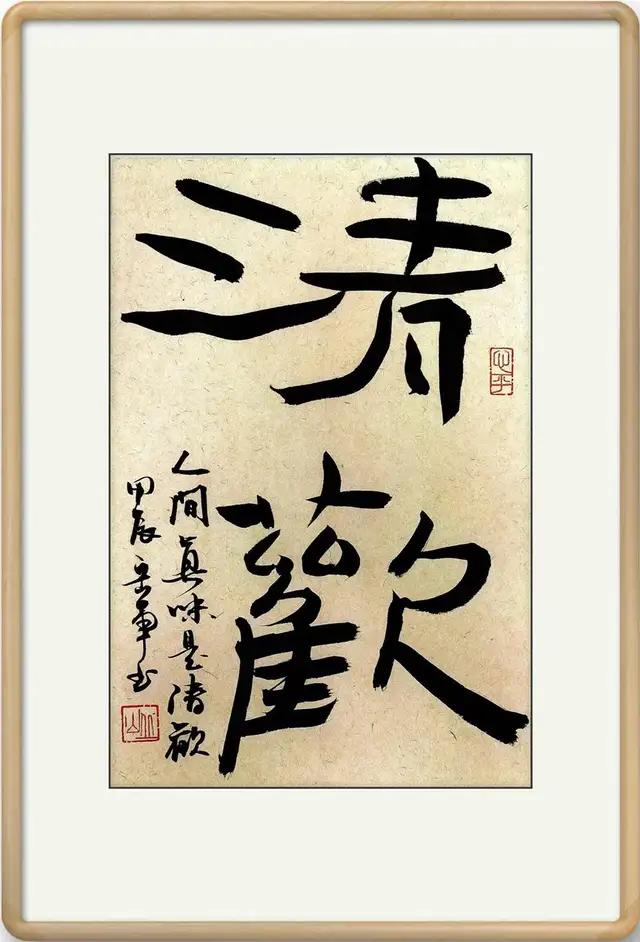 清
歡
人間真味是清歡
甲辰
書